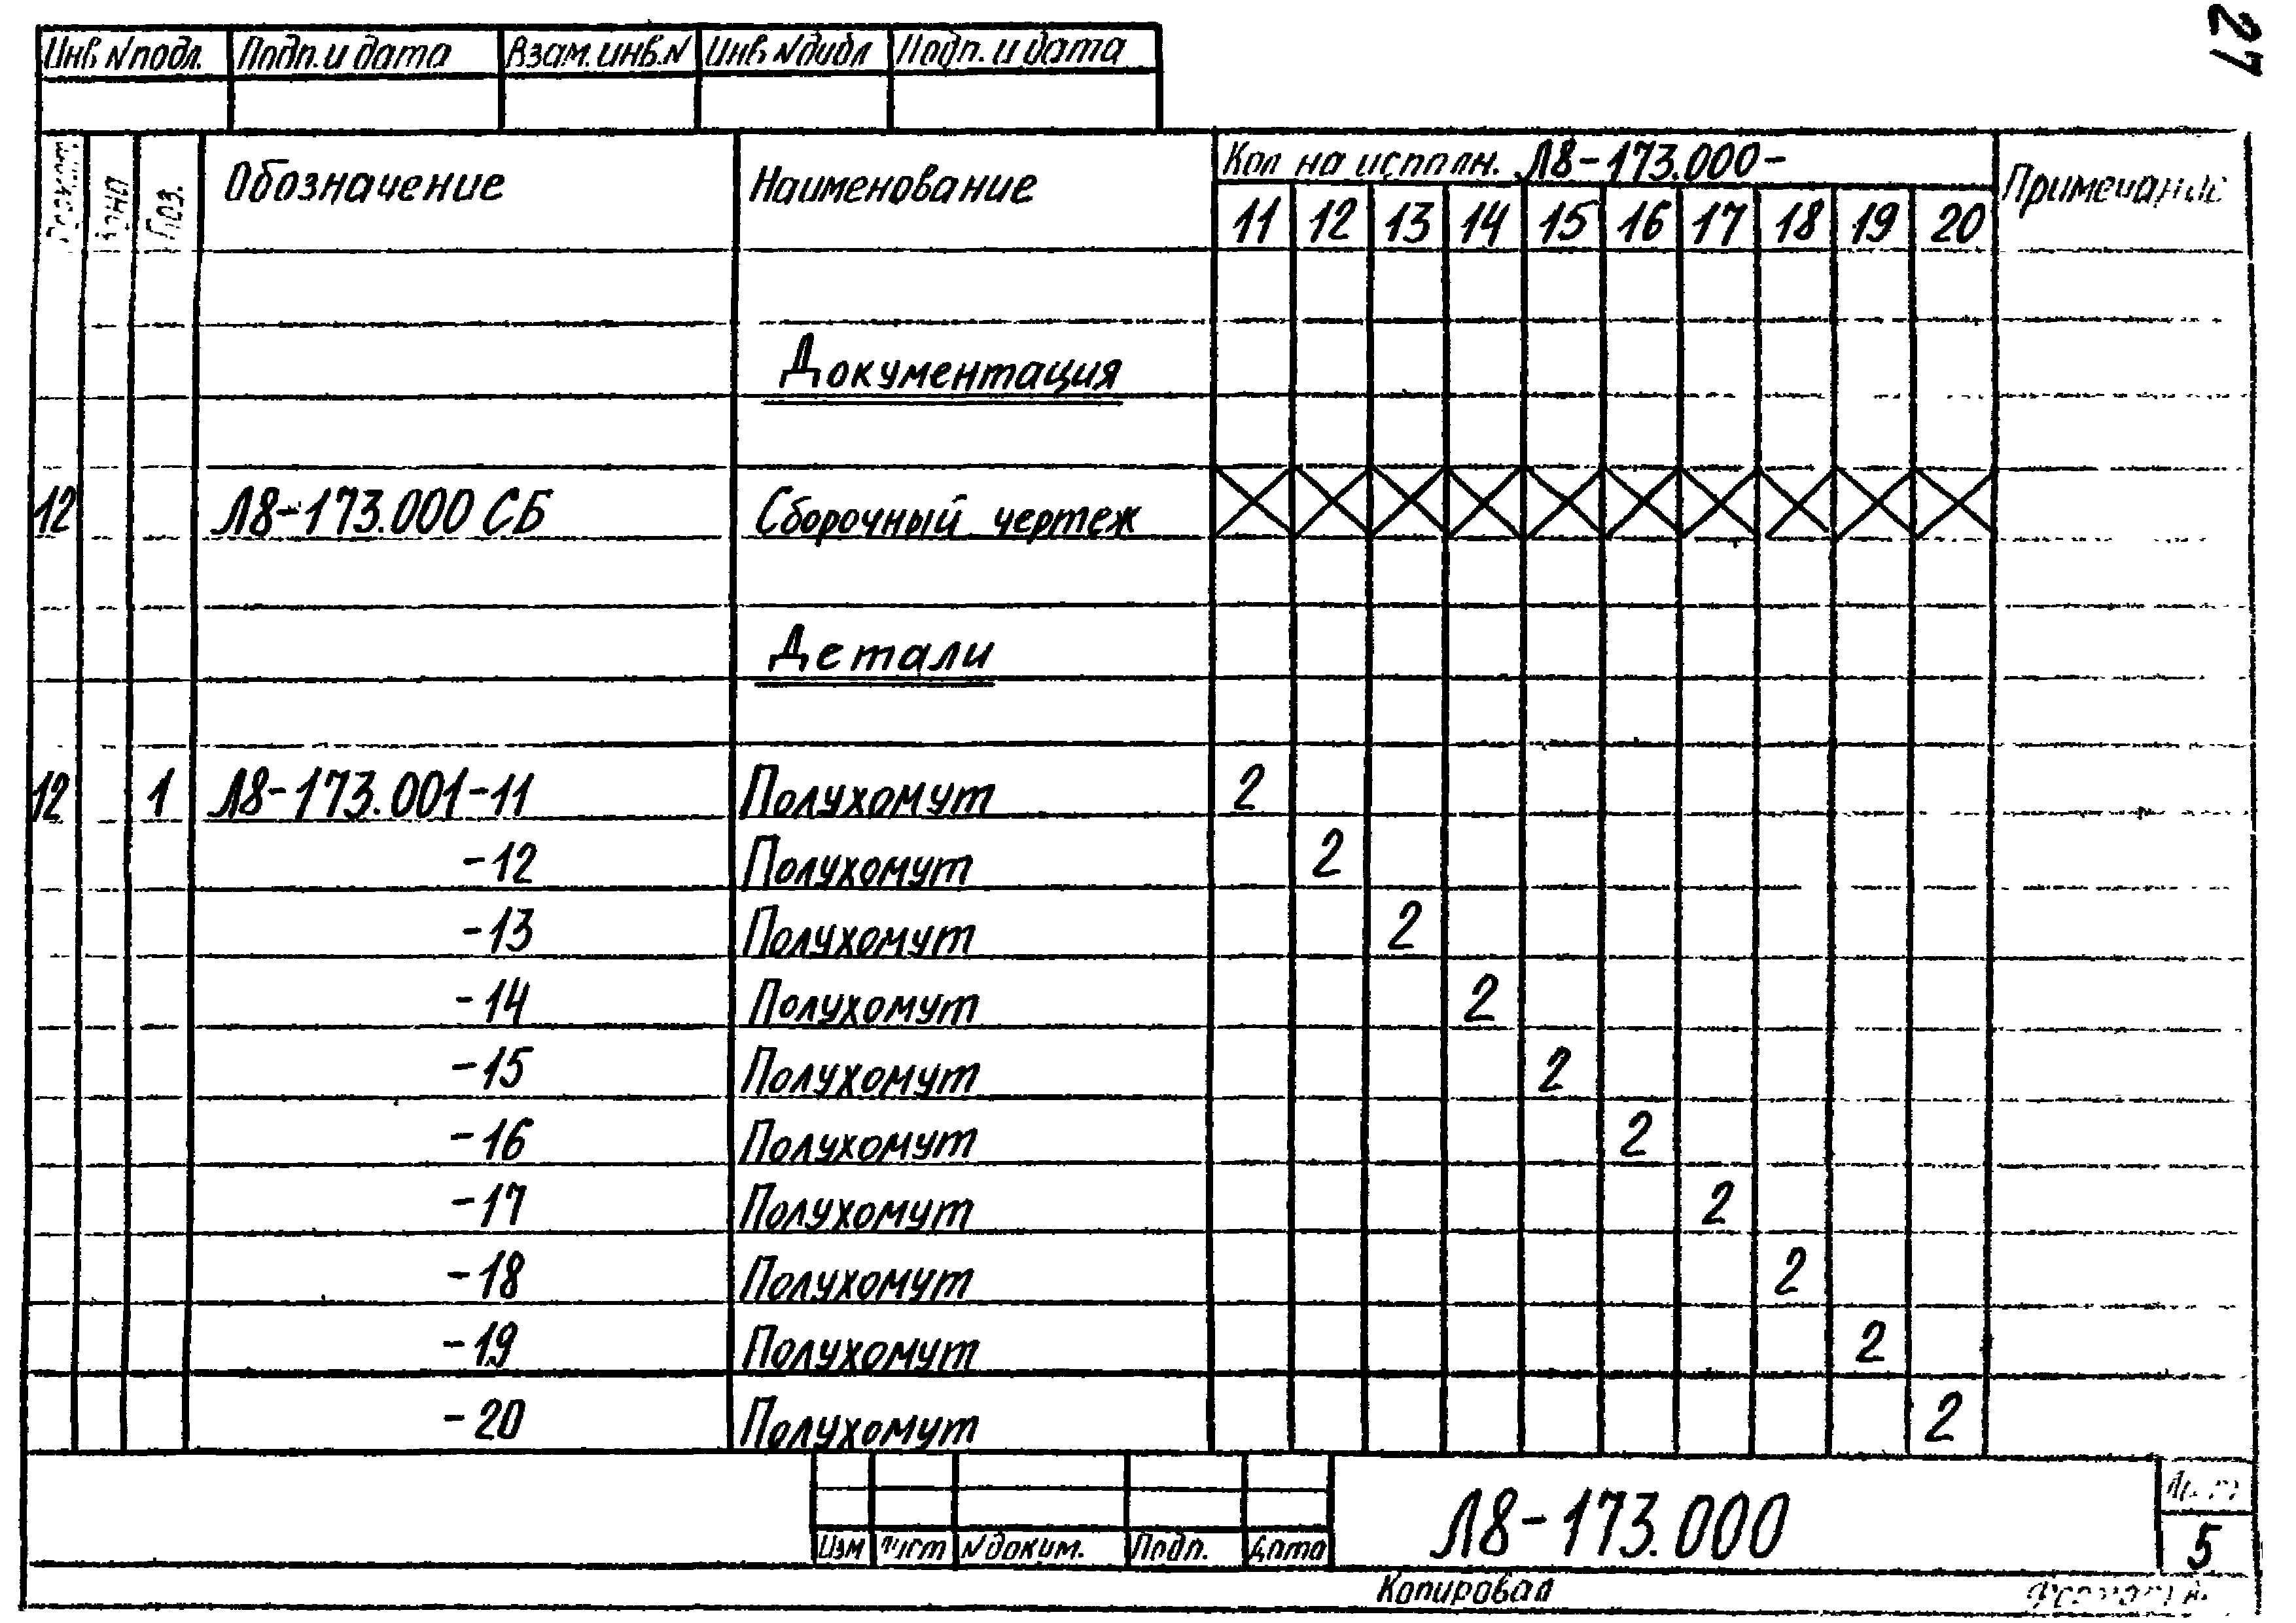 27
Инв N подл. Подп. и дата Взам. инв. N Инв. N дубл Подп. и дата
Зона Поз. Обозначение Наименование Кол на исполн. Л8-173.000- Примечание
11 12 13 14 15 16 17 18 19 20
Документация
12 Л8-173.000 СБ Сборочный чертеж
Детали
12 1 Л8-173.001-11 Полухомут 2
-12 Полухомут 2
-13 Полухомут 2
-14 Полухомут 2
-15 Полухомут 2
-16 Полухомут 2
-17 Полухомут 2
-18 Полухомут 2
-19 Полухомут 2
-20 Полухомут 2
Изм Лист N доким. Подп. Дата Л8-173.000 Лист
5
Копировал